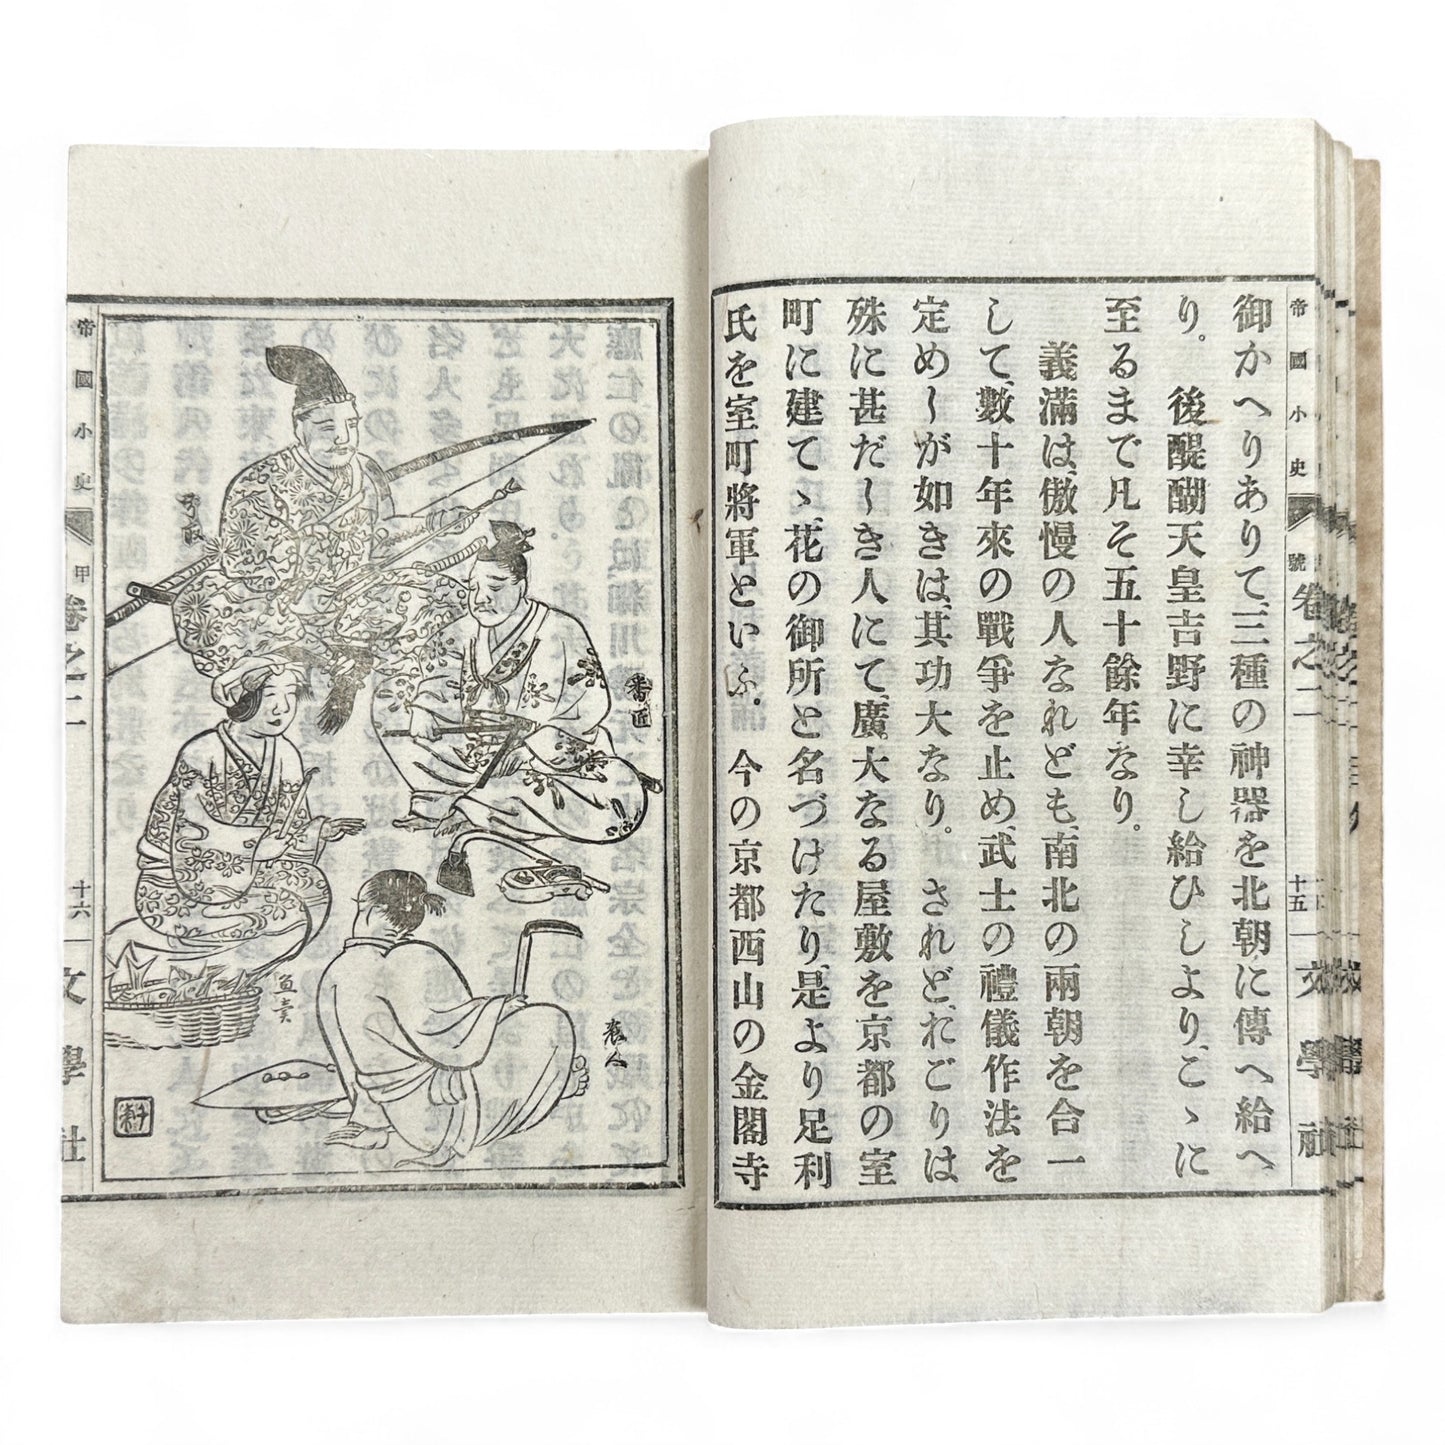 帝國小史
號
卷之二
十五
文學社
御かへりありて、三種の神器を北朝に傳へ給へ
り。後醍醐天皇吉野に幸し給ひしより、こゝに
至るまで凡そ五十餘年なり。
義滿は、傲慢の人なれども、南北の兩朝を合一
して、數十年來の戰爭を止め、武士の禮儀作法を
定めしが如きは、其功大なり。されど、れごりは
殊に甚だしき人にて、廣大なる屋敷を京都の室
町に建てゝ、花の御所と名づけたり、是より足利
氏を室町將軍といふ。今の京都西山の金閣寺
番匠
魚賣
帝國小史
甲
卷之二
十六
文學社